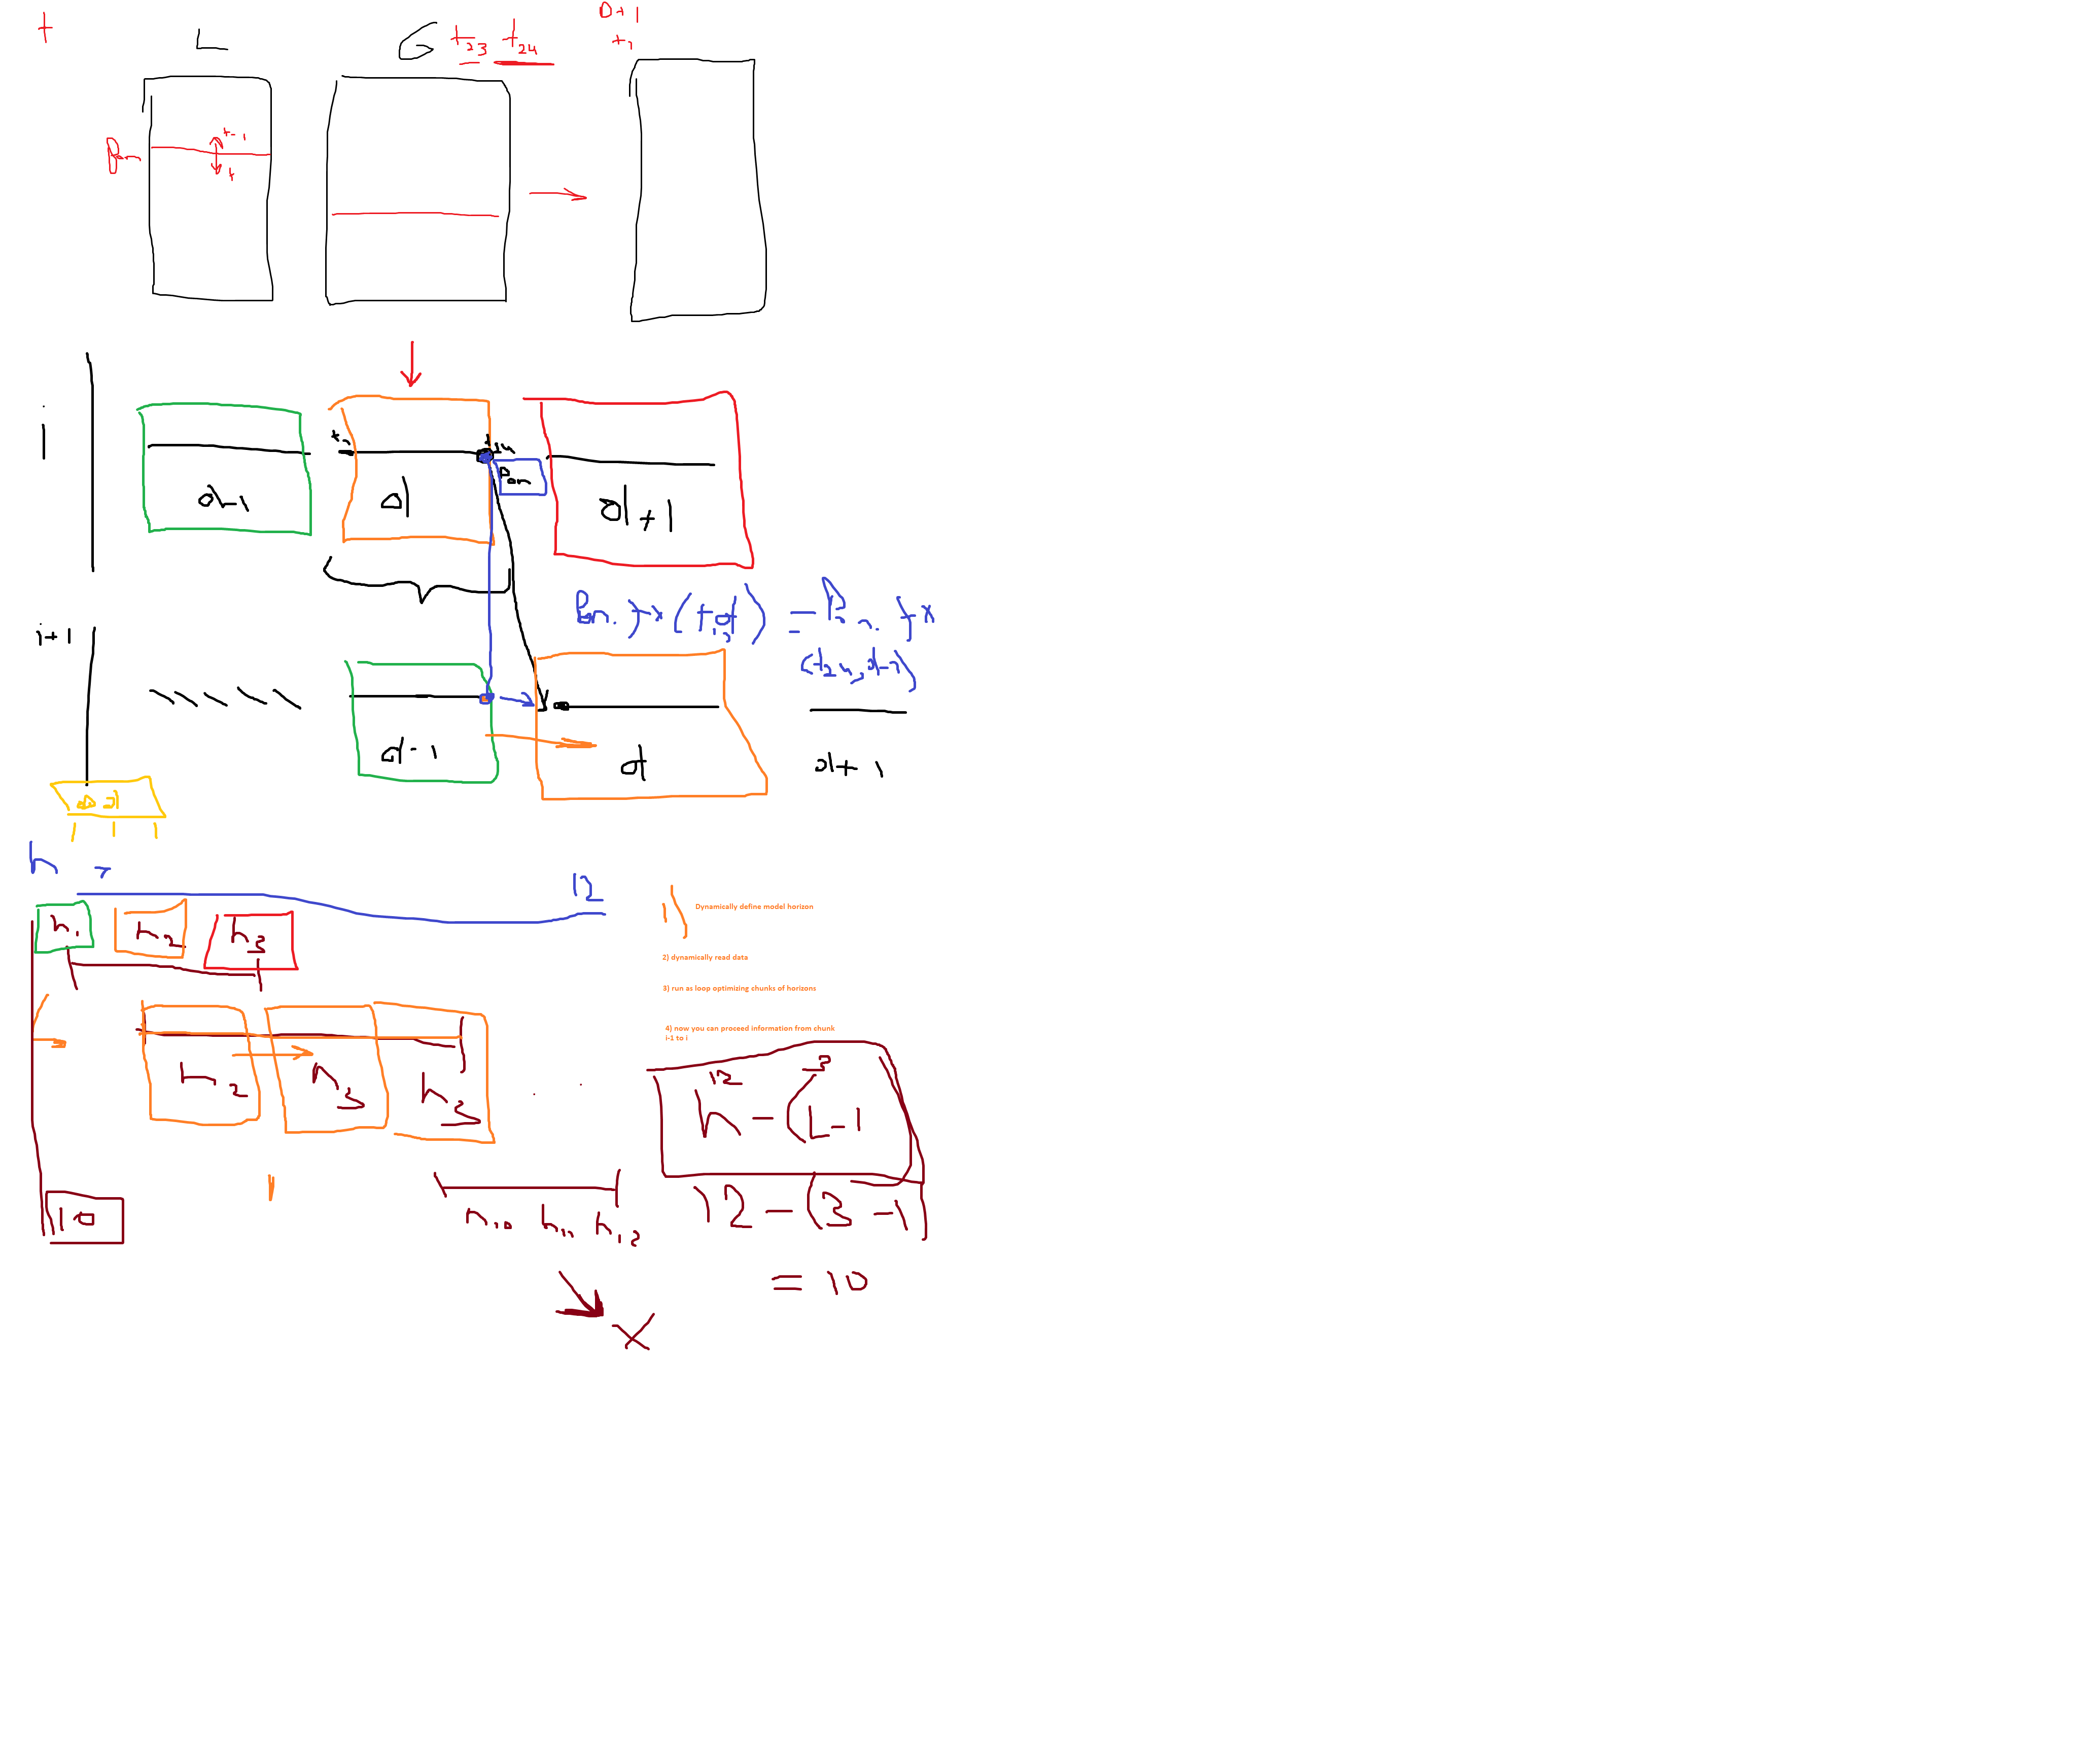 t
L
G t23 t24
D+1
t1
t-1
t
i
d-1
t1
d
t24
d+1
i+1
(t24, d-1)
d-1
d
d+1
h
12
h1
h2
h3
1)
Dynamically define model horizon
2) dynamically read data
3) run as loop optimizing chunks of horizons
4) now you can proceed information from chunk
i-1 to i
h2
h3
12 3
h-(L-1
10
h10 h11 h12
12-(3-1)
= 10
X